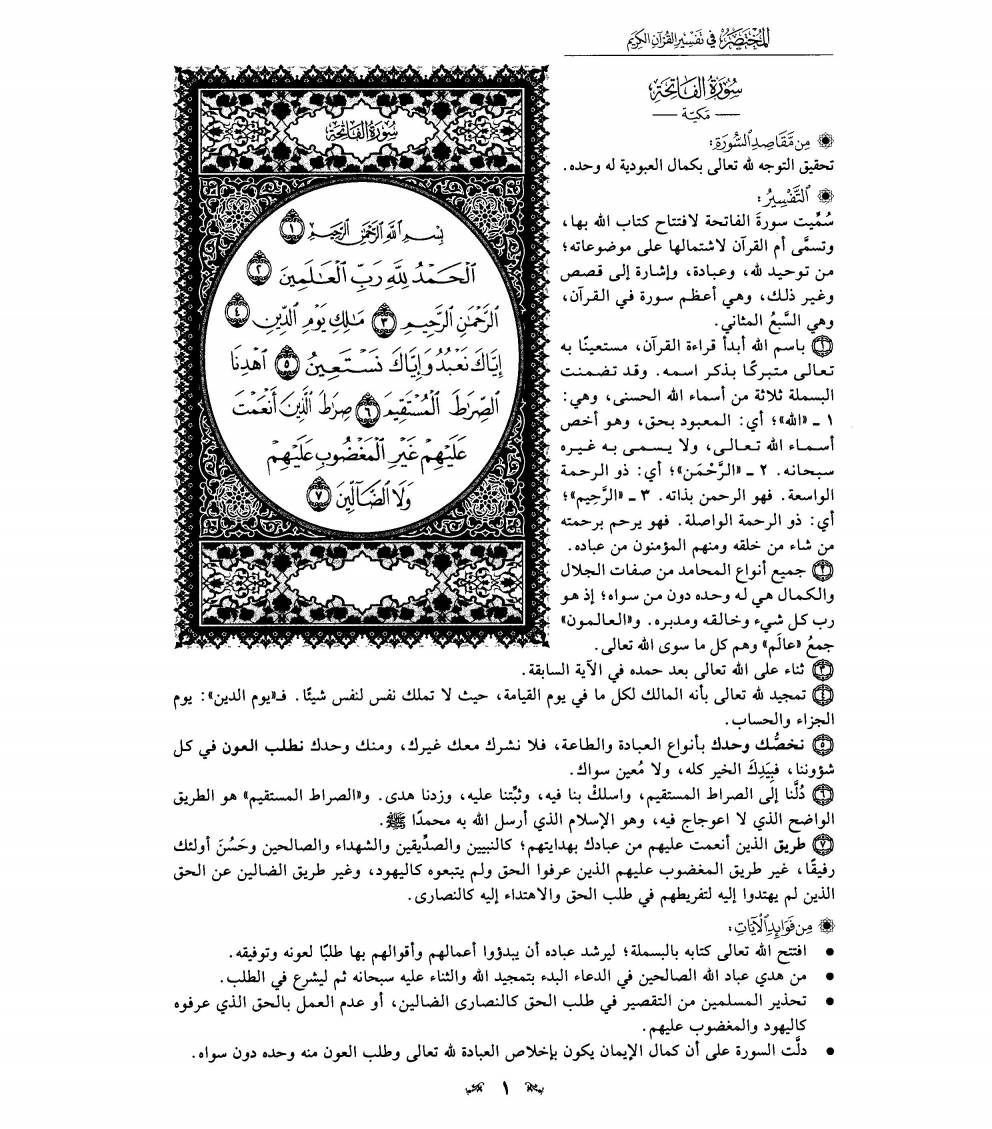 المختصر في تفسير القرآن الكريم
سُورَةُ الفَاتِحَةِ
— مَكيّة —
مِن مَّقَاصِدِ السُّورَةِ:
تحقيق التوجه لله تعالى بكمال العبودية له وحده.
التَّفْسِيرُ:
سُمِّيت سورةَ الفاتحة لافتتاح كتاب الله بها،
وتسمَّى أم القرآن لاشتمالها على موضوعاته؛
من توحيد لله، وعبادة، وإشارة إلى قصص
وغير ذلك، وهي أعظم سورة في القرآن،
وهي السَّبعُ المثاني.
١ باسم الله أبدأ قراءة القرآن، مستعينًا به
تعالى متبركًا بذكر اسمه. وقد تضمنت
البسملة ثلاثة من أسماء الله الحسنى، وهي:
١ ـ «الله»؛ أي: المعبود بحق، وهو أخص
أسماء الله تعالى، ولا يسمى به غيره
سبحانه. ٢ ـ «الرَّحْمَن»؛ أي: ذو الرحمة
الواسعة. فهو الرحمن بذاته. ٣ ـ «الرَّحِيم»؛
أي: ذو الرحمة الواصلة. فهو يرحم برحمته
من شاء من خلقه ومنهم المؤمنون من عباده.
٢ جميع أنواع المحامد من صفات الجلال
والكمال هي له وحده دون من سواه؛ إذ هو
رب كل شيء وخالقه ومدبره. و«العالمون»
جمعُ «عالَم» وهم كل ما سوى الله تعالى.
٣ ثناء على الله تعالى بعد حمده في الآية السابقة.
٤ تمجيد لله تعالى بأنه المالك لكل ما في يوم القيامة، حيث لا تملك نفس لنفس شيئًا. فـ«يوم الدين»: يوم
الجزاء والحساب.
٥ نخصُّك وحدك بأنواع العبادة والطاعة، فلا نشرك معك غيرك، ومنك وحدك نطلب العون في كل
شؤوننا، فبِيَدِكَ الخير كله، ولا مُعين سواك.
٦ دُلَّنا إلى الصراط المستقيم، واسلكْ بنا فيه، وثبِّتنا عليه، وزدنا هدى. و«الصراط المستقيم» هو الطريق
الواضح الذي لا اعوجاج فيه، وهو الإسلام الذي أرسل الله به محمدًا ﷺ.
٧ طريق الذين أنعمت عليهم من عبادك بهدايتهم؛ كالنبيين والصدِّيقين والشهداء والصالحين وحَسُنَ أولئك
رفيقًا، غير طريق المغضوب عليهم الذين عرفوا الحق ولم يتبعوه كاليهود، وغير طريق الضالين عن الحق
الذين لم يهتدوا إليه لتفريطهم في طلب الحق والاهتداء إليه كالنصارى.
مِن فَوَائِدِ الآيَاتِ:
• افتتح الله تعالى كتابه بالبسملة؛ ليرشد عباده أن يبدؤوا أعمالهم وأقوالهم بها طلبًا لعونه وتوفيقه.
• من هدي عباد الله الصالحين في الدعاء البدء بتمجيد الله والثناء عليه سبحانه ثم ليشرع في الطلب.
• تحذير المسلمين من التقصير في طلب الحق كالنصارى الضالين، أو عدم العمل بالحق الذي عرفوه
كاليهود والمغضوب عليهم.
• دلَّت السورة على أن كمال الإيمان يكون بإخلاص العبادة لله تعالى وطلب العون منه وحده دون سواه.
سُورَةُ الفَاتِحَةِ
بِسۡمِ ٱللَّهِ ٱلرَّحۡمَٰنِ ٱلرَّحِيمِ ١
ٱلۡحَمۡدُ لِلَّهِ رَبِّ ٱلۡعَٰلَمِينَ ٢
ٱلرَّحۡمَٰنِ ٱلرَّحِيمِ ٣ مَٰلِكِ يَوۡمِ ٱلدِّينِ ٤
إِيَّاكَ نَعۡبُدُ وَإِيَّاكَ نَسۡتَعِينُ ٥ ٱهۡدِنَا
ٱلصِّرَٰطَ ٱلۡمُسۡتَقِيمَ ٦ صِرَٰطَ ٱلَّذِينَ أَنۡعَمۡتَ
عَلَيۡهِمۡ غَيۡرِ ٱلۡمَغۡضُوبِ عَلَيۡهِمۡ
وَلَا ٱلضَّآلِّينَ ٧
١